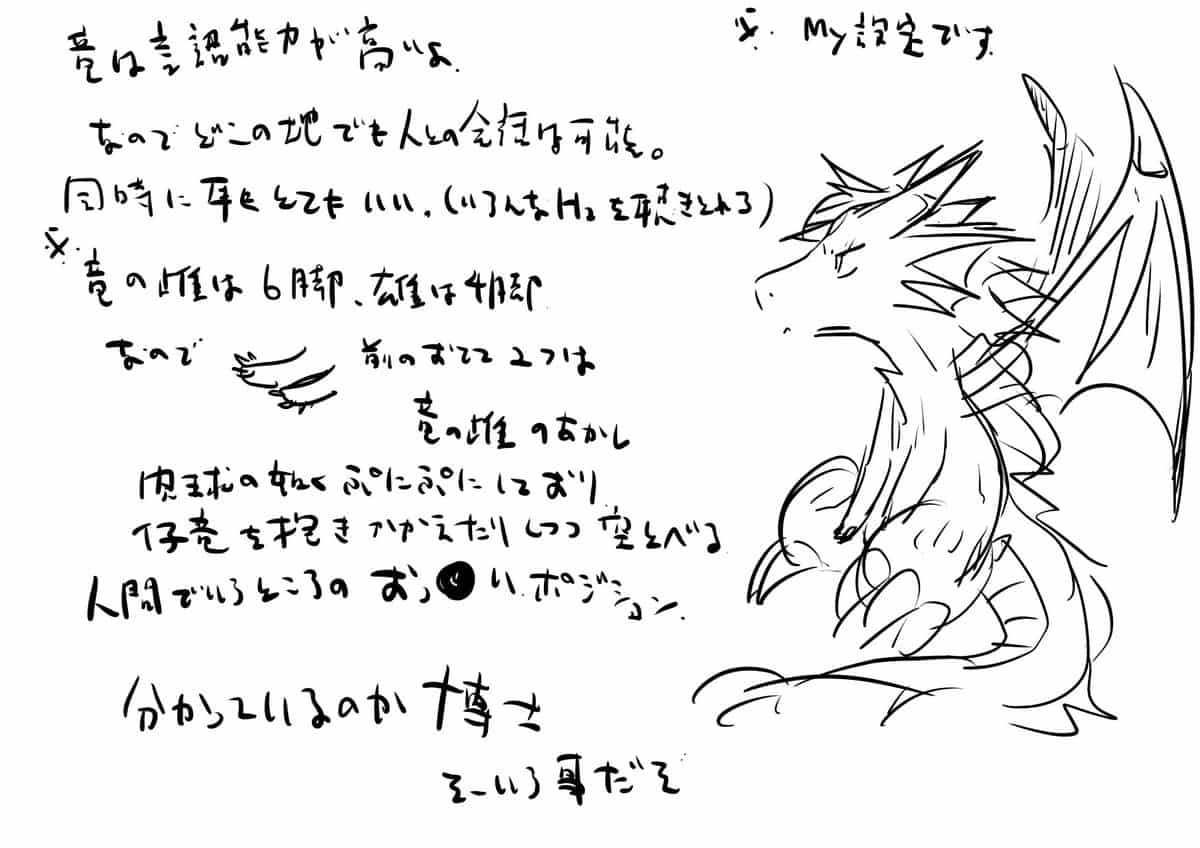 ※. My設定です
竜は言認能力が高いよ.
なので どこの地でも人との会話は可能。
同時に 耳も とても いい. (いろんなHzを聴きとれる)
※. 竜の雌は6脚、雄は4脚
なので 前のおてて2つは
竜の雌 のあかし
肉球の如く ぷにぷにしており
仔竜を抱きかかえたりしつつ 空とべる
人間でいうところの おっ●い.ポジション.
分かっているのか 博士
そーいう耳だぞ